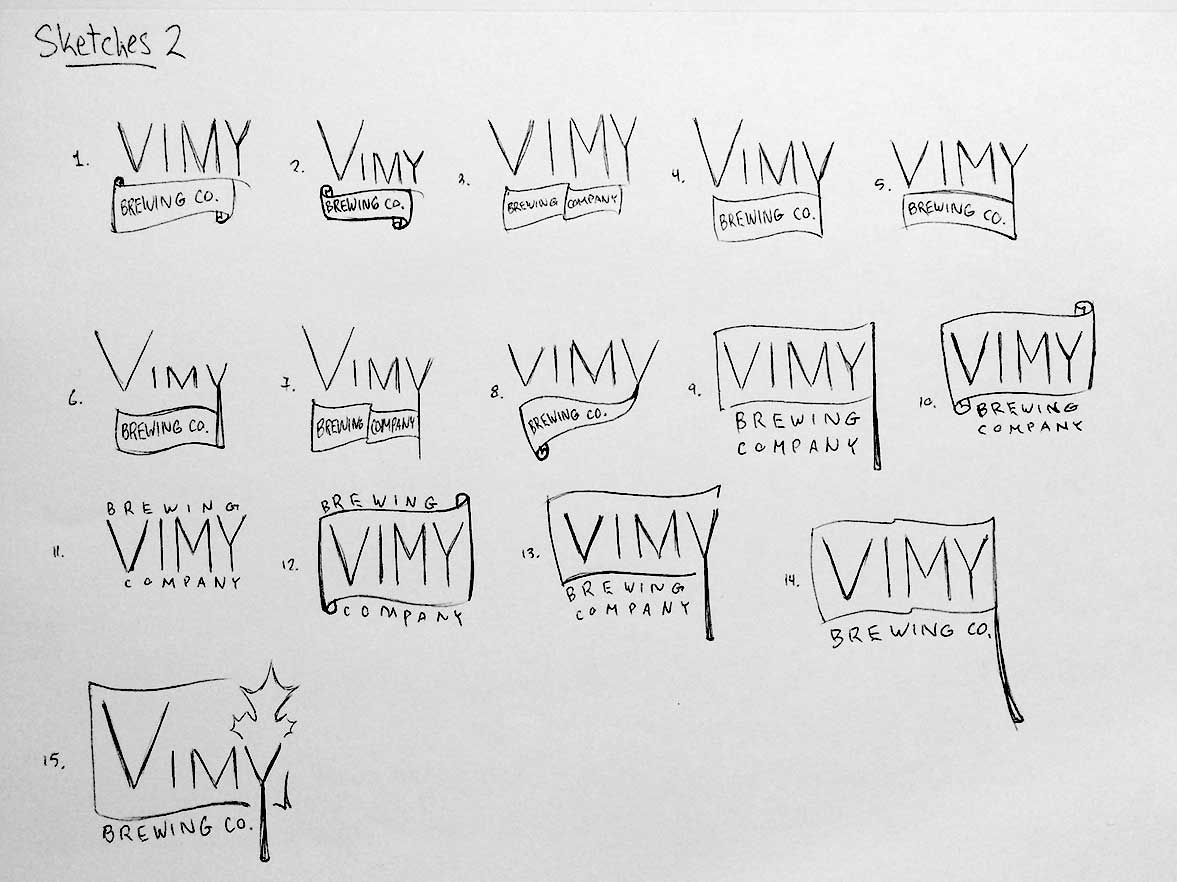 Sketches 2
1. VIMY
BREWING CO.
2. VIMY
BREWING CO.
3. VIMY
BREWING COMPANY
4. VIMY
BREWING CO.
5. VIMY
BREWING CO.
6. VIMY
BREWING CO.
7. VIMY
BREWING COMPANY
8. VIMY
BREWING CO.
9. VIMY
BREWING
COMPANY
10. VIMY
BREWING
COMPANY
BREWING
11. VIMY
COMPANY
BREWING
12. VIMY
COMPANY
13. VIMY
BREWING
COMPANY
14. VIMY
BREWING CO.
15. VIMY
BREWING CO.